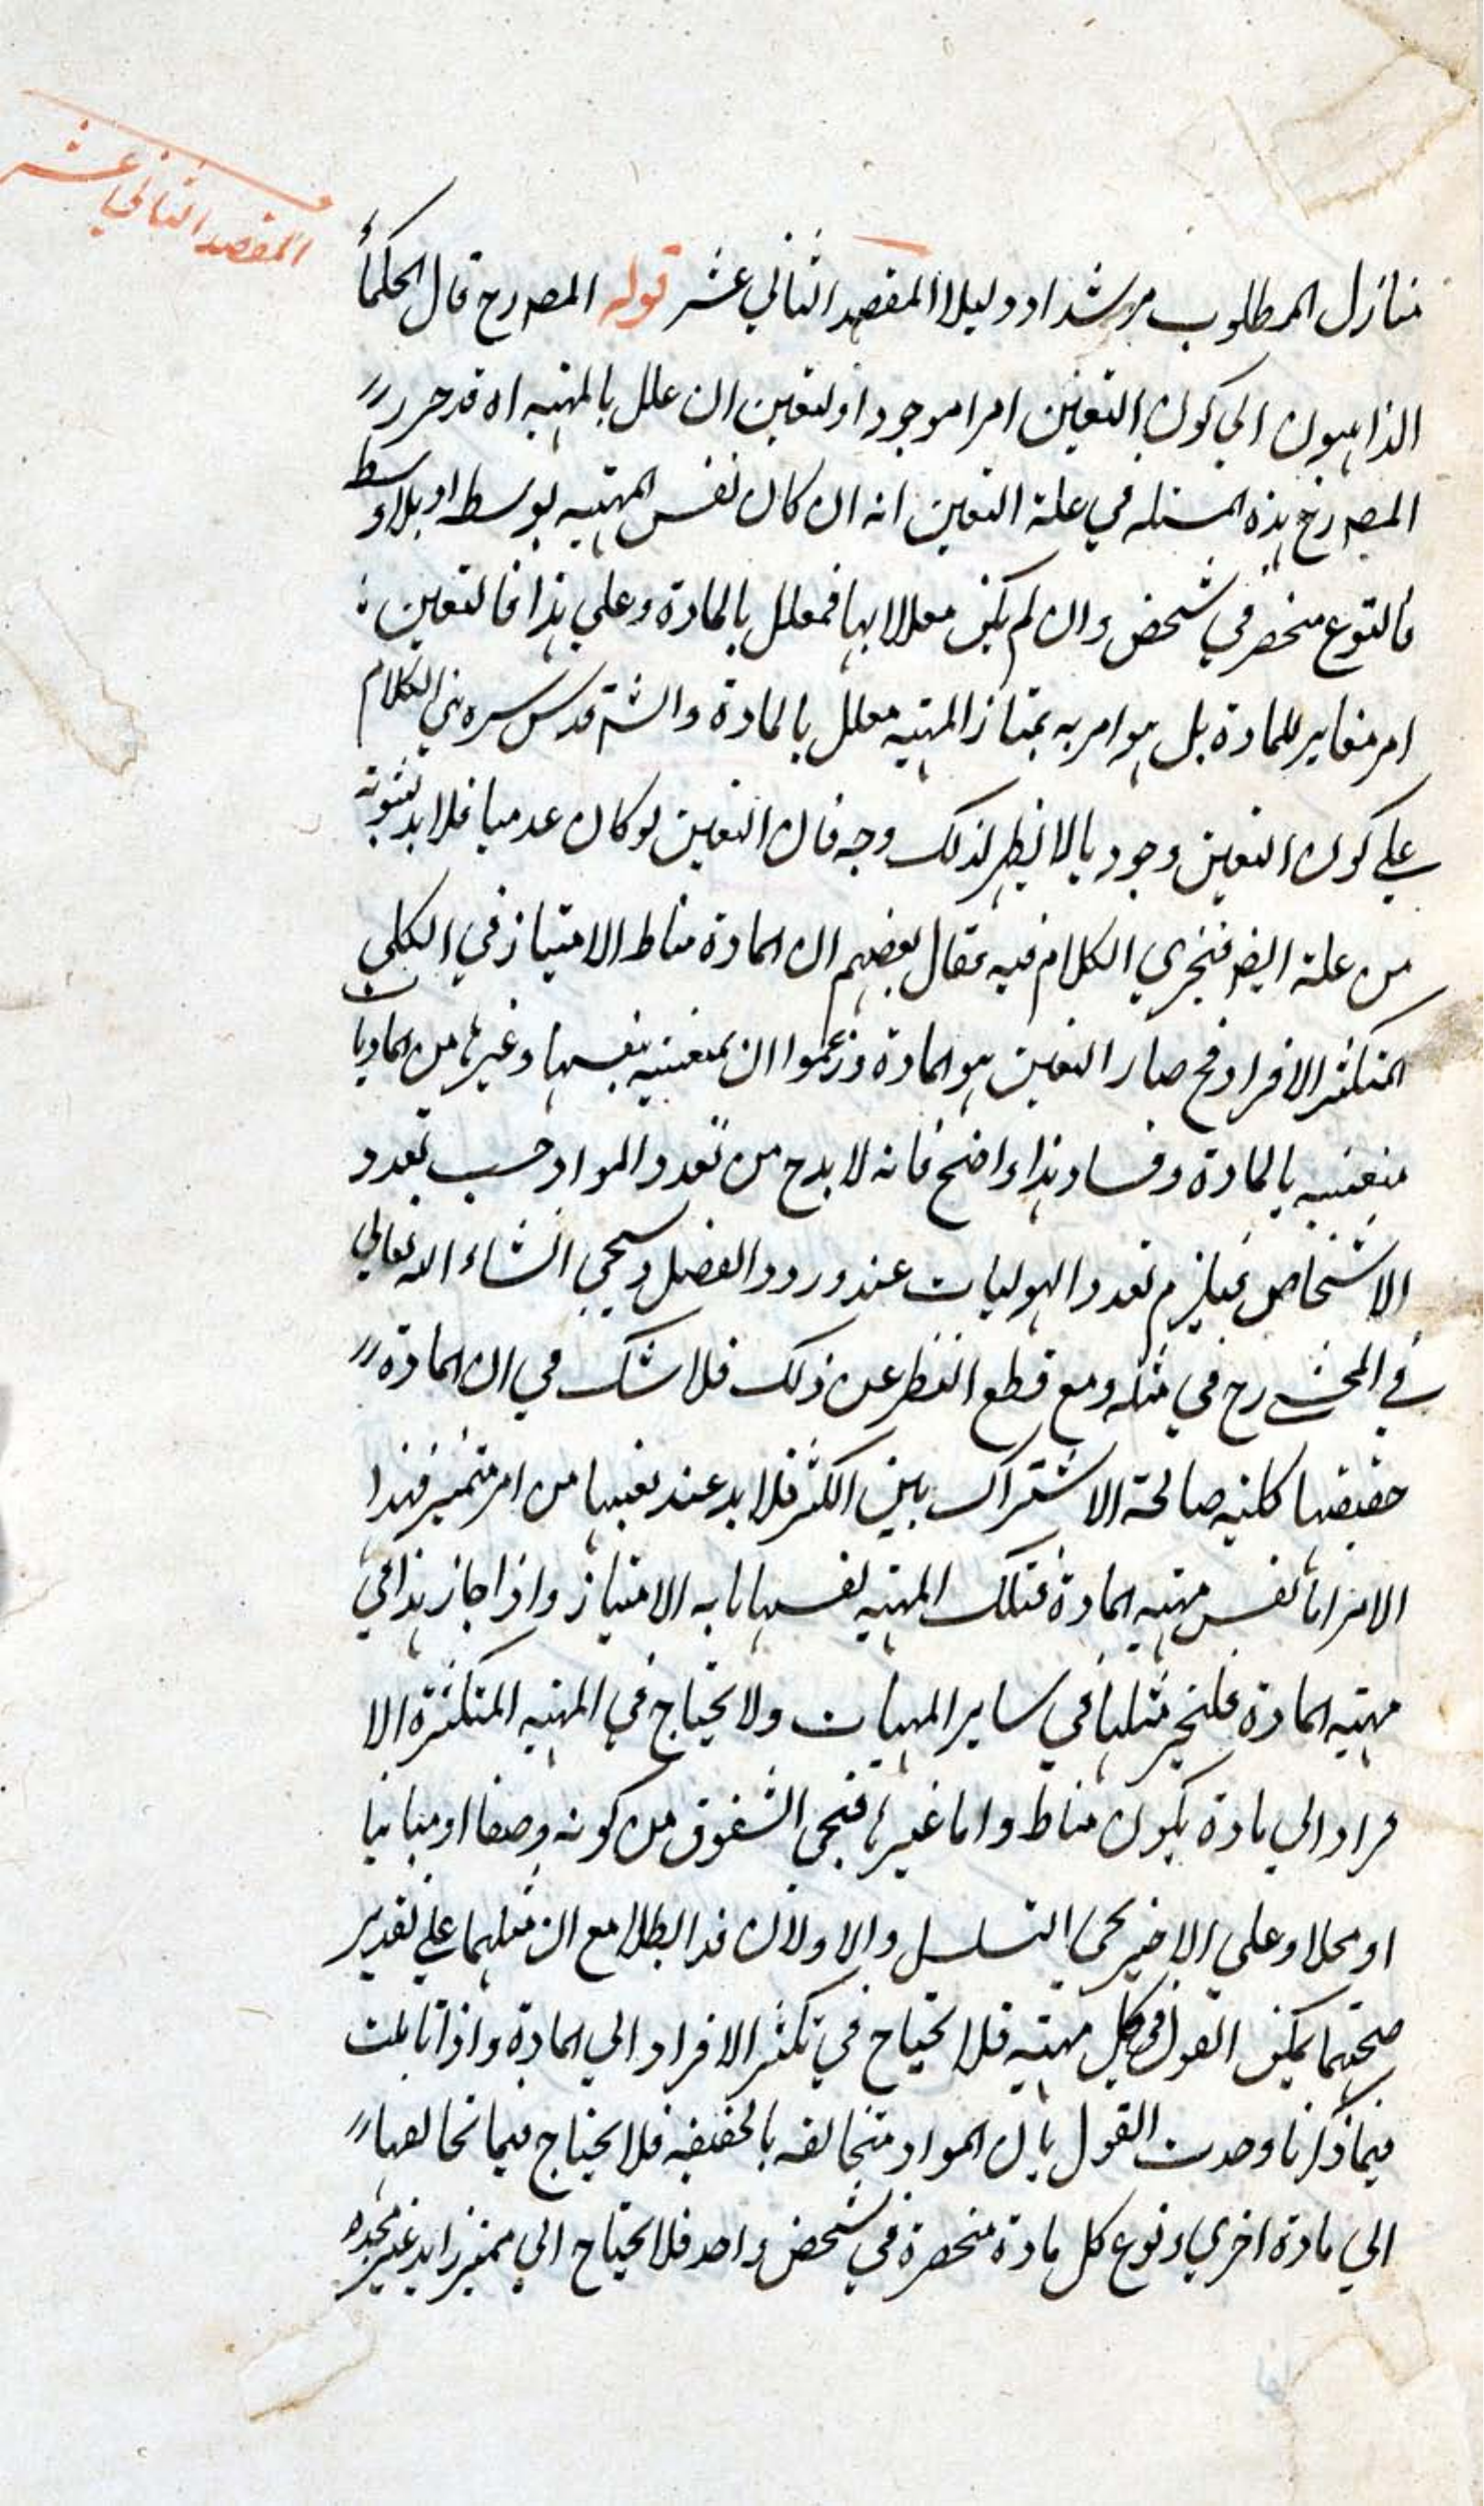 المقصد الثاني عشر
منازل المطلوب مرشدا ودليلا المقصد الثاني عشر قوله المصرح قال الحكماء
الذاهبون الى كون التعين امرا موجودا ولتعين ان علل بالمهية اه قد حرر
المصرح هذه المسئلة في علة التعين انه ان كان نفس المهية بوسط او بلا وسط
فالنوع منحصر في شخص وان لم يكن معللا بها فمعلل بالمادة وعلي هذا فالتعين
امر مغاير للمادة بل هو امر به يمتاز المهية معلل بالمادة والش قدس سره بني الكلام
علي كون التعين وجوديا لا يظهر لذلك وجه فان التعين لو كان عدميا فلا بد لثبوته
من علة ايض فيجري الكلام فيه فقال بعضهم ان المادة مناط الامتياز في الكلي
المتكثر الافراد فح صار التعين هو المادة وزعموا ان متعينة بنفسها وغيرها من الماديات
متعينه بالمادة وفساد هذا واضح فانه لا بد ح من تعدد المواد حسب تعدد
الاشخاص فيلزم تعدد الهوليات عند ورود الفصل وسيجي انشاء الله تعالي
في المخ رح في مثله ومع قطع النظر عن ذلك فلا شك في ان المادة
حقيقتها كلية صالحة الاشتراك بين الكثر فلا بد عند تعينها من امر متميز فهذا
الامر اما نفس مهية المادة فتلك المهية نفسها ما به الامتياز واذا جاز هذا في
مهية المادة فليجر مثلها في ساير المهيات ولا يحتاج في المهية المتكثرة الا
فراد الي مادة يكون مناط واما غيرها فيجي الشقوق من كونه وصفا او مباينا
او محلا وعلي الاخير يجي التسلسل والاولان قد ابطلا مع ان مثلهما علي تقدير
صحتهما يمكن القول في كل مهية فلا يحتاج في تكثر الافراد الي المادة واذا تاملت
فيما ذكرنا وجدت القول بان المواد متخالفه بالحقيقه فلا يحتاج فيما تخالفها
الي مادة اخري ونوع كل مادة منحصرة في شخص واحد فلا يحتاج الي مميز زايد غير